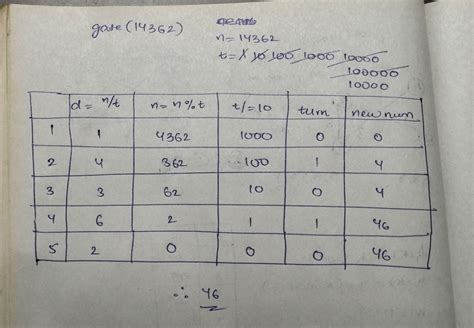 gate (14362)
n = 14362
t = 1 10 100 1000 10000
100000
10000
d = n/t n = n%t t/=10 turn new num
1 1 4362 1000 0 0
2 4 362 100 1 4
3 3 62 10 0 4
4 6 2 1 1 46
5 2 0 0 0 46
∴ 46